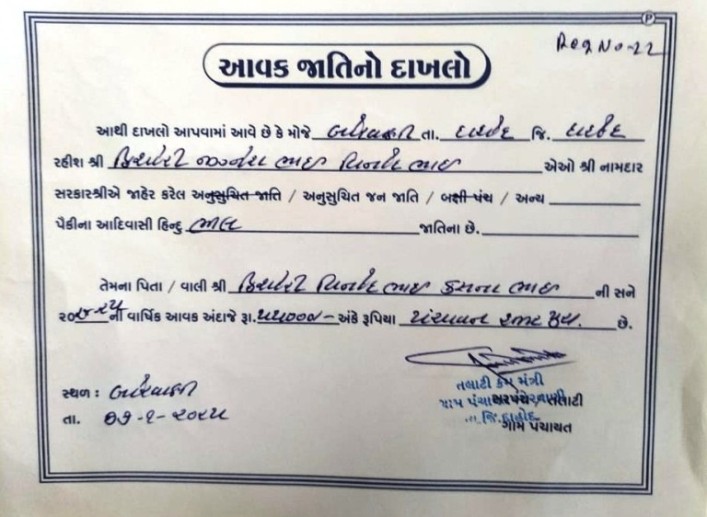 Reg No-22
આવક જાતિનો દાખલો
આથી દાખલો આપવામાં આવે છે કે મોજે તા. દાહોદ જિ. દાહોદ
રહીશ શ્રી ભાઇ વિનોદ ભાઇ એઓ શ્રી નામદાર
સરકારશ્રીએ જાહેર કરેલ અનુસુચિત જાતિ / અનુસુચિત જન જાતિ / બક્ષી પંથ / અન્ય
પૈકીના આદિવાસી હિન્દુ ભીલ જાતિના છે.
તેમના પિતા / વાલી શ્રી વિનોદ ભાઇ ભાઇ ની સને
૨૦ ની વાર્ષિક આવક અંદાજે રૂા. ૫૫૦૦૦/- અંકે રૂપિયા પંચાવન હજાર પુરા. છે.
સ્થળ :
તા. ૦૭-૧-૨૦૨૫
તલાટી કમ મંત્રી
સરપંચ / તલાટી
જિ. દાહોદ
ગ્રામ પંચાયત